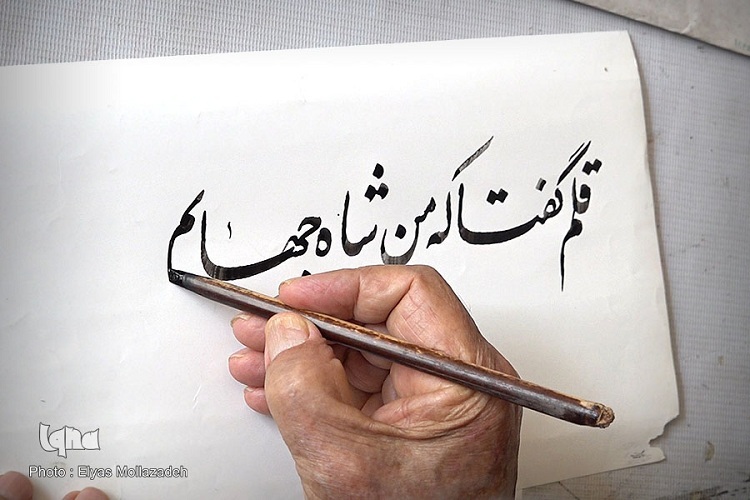 قلم گفتا که من شاه جهانم
Iqna
Photo : Elyas Mollazadeh